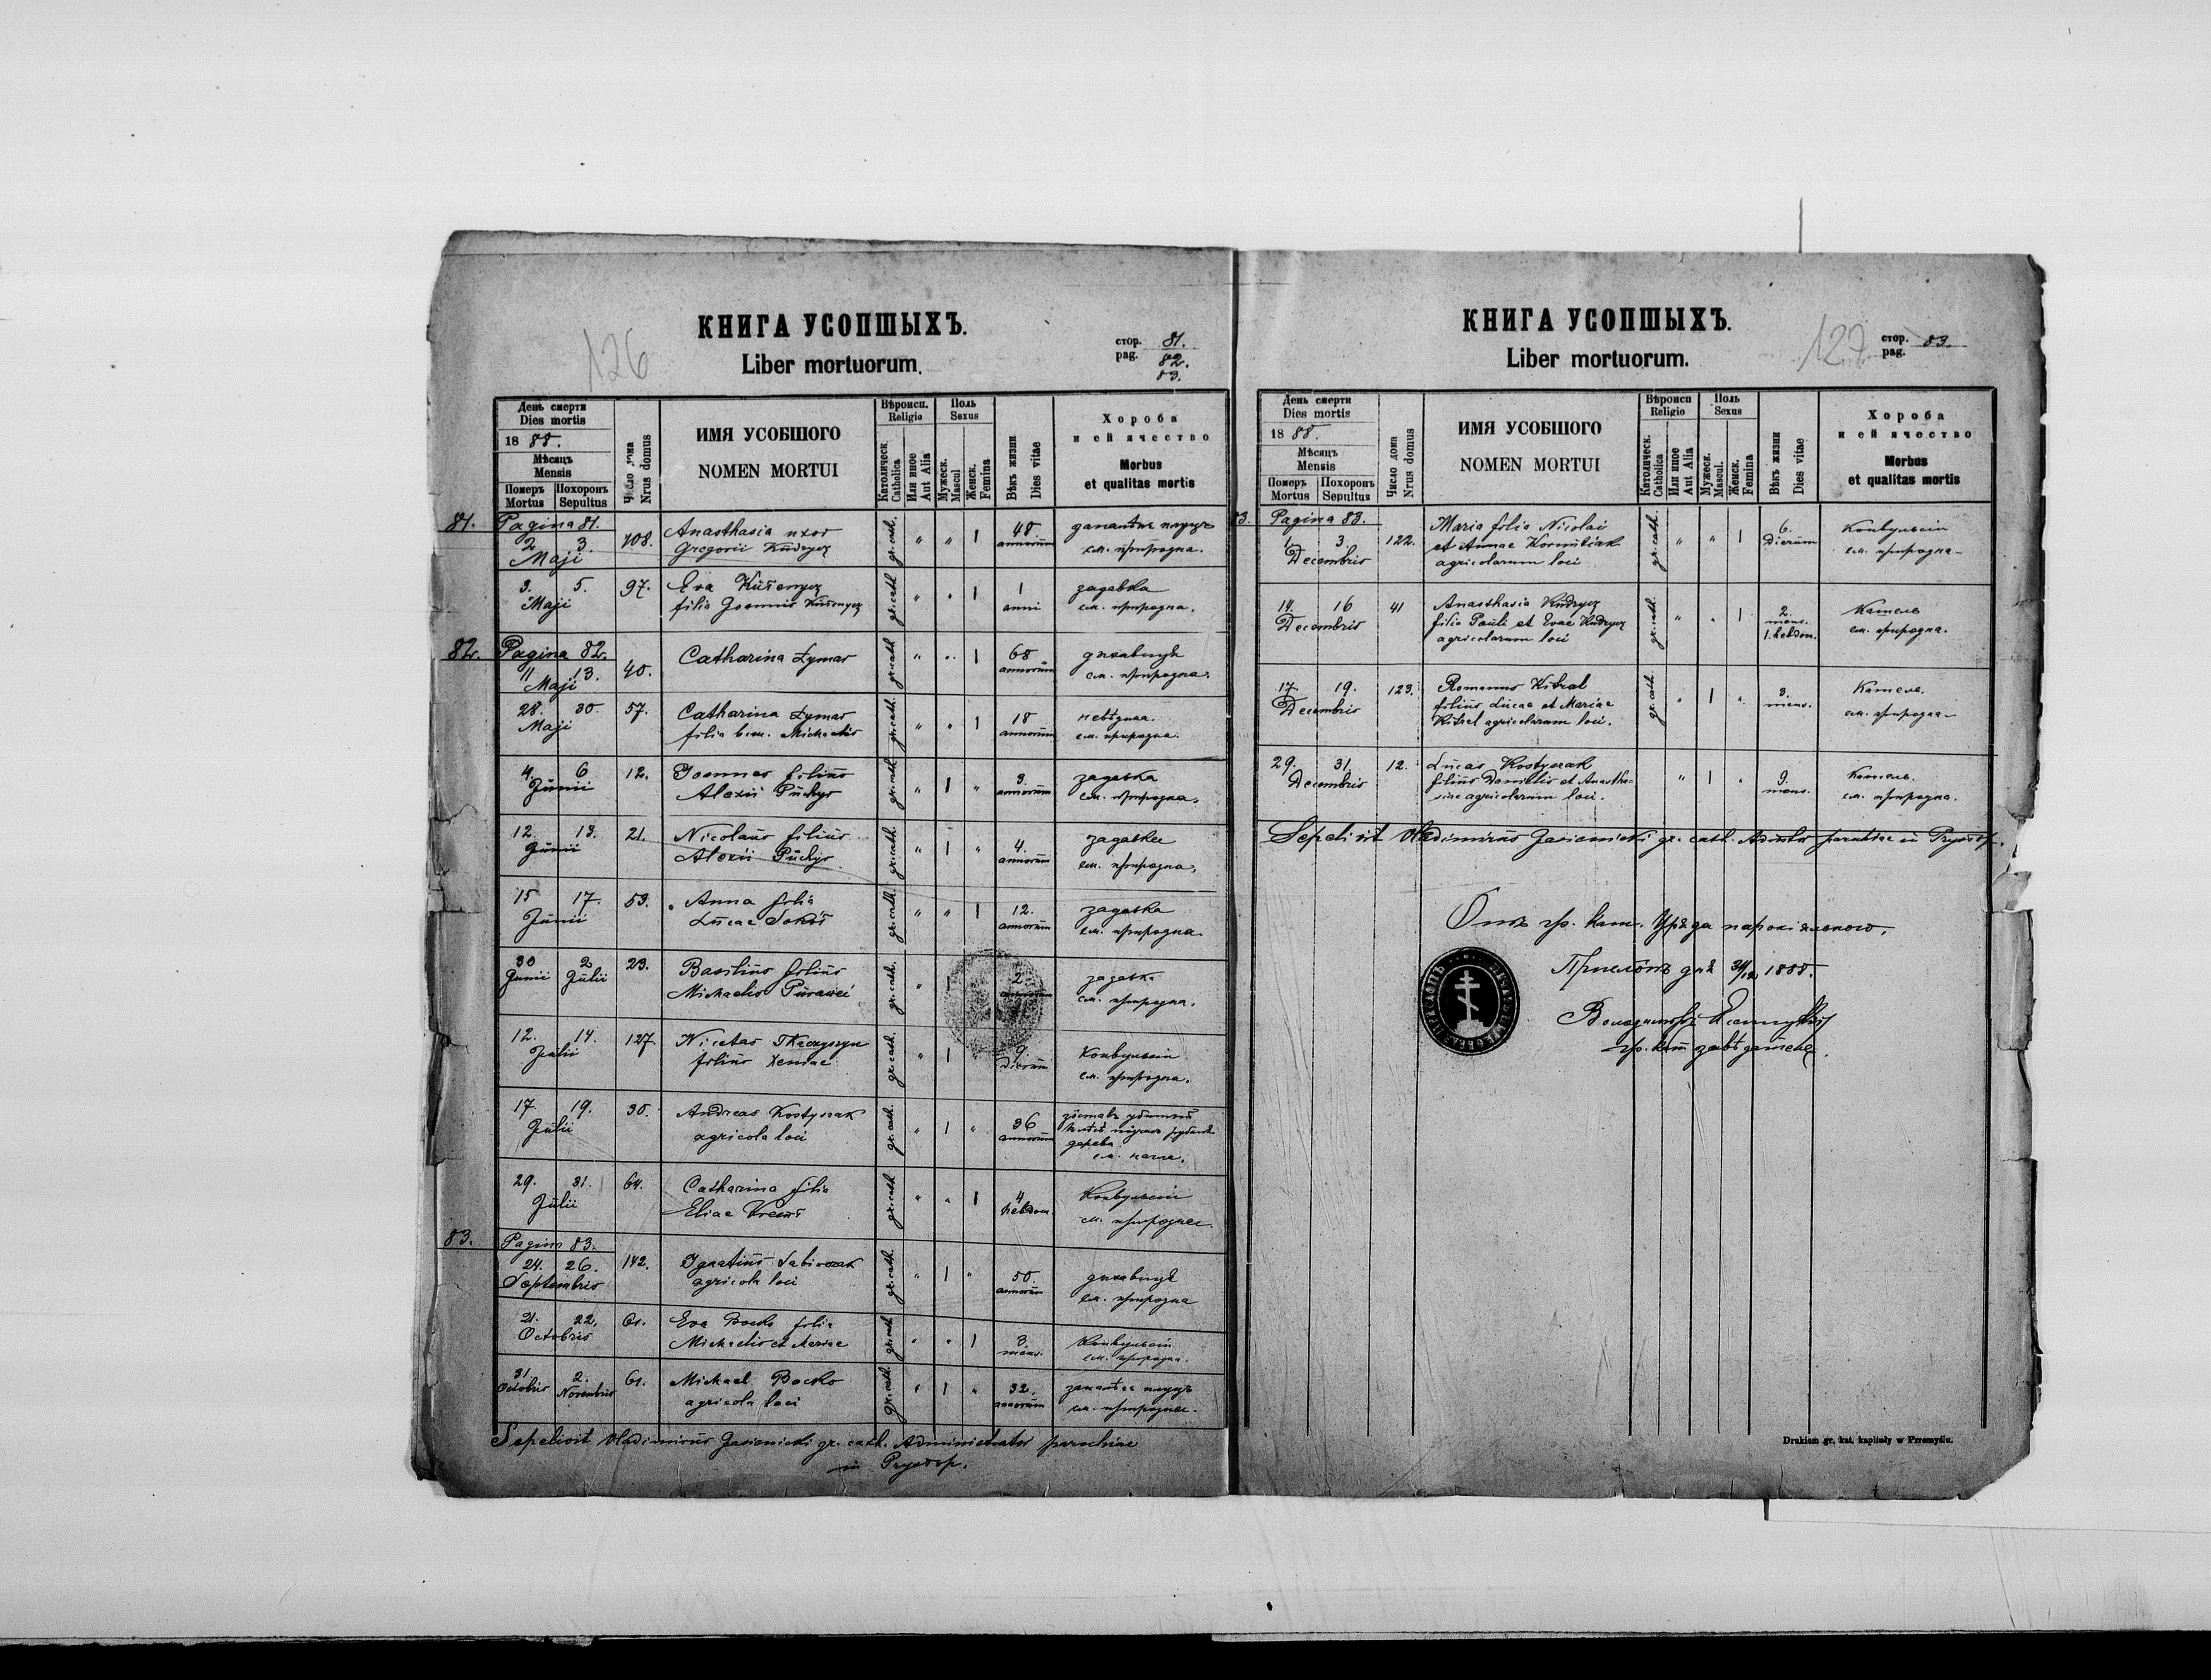 КНИГА УСОПШЫХЪ.
Liber mortuorum.
126
стор. 81.
pag. 82.
83.
День смерти
Dies mortis
1888.
Мѣсяцъ
Mensis
Померъ Похоронъ
Mortus Sepultus
Число дома
Nrus domus
ИМЯ УСОБШОГО
NOMEN MORTUI
Вѣроисп.
Religio
Католическ.
Catholica
Или иное
Aut Alia
Поль
Sexus
Мужеск.
Mascul
Женск.
Femina
Вѣкъ жизни
Dies vitae
Хороба
и ей ячество
Morbus
et qualitas mortis
81. Pagina 81.
2 3. Maji 108. Anasthasia uxor gr. cath. " " 1 48. annorum
Gregorii Kudrycz см. природна.
3. 5. Maji 97. Eva gr. cath. " " 1 1 anni задавка
filia Joannis см. природна.
82. Pagina 82.
11 13. Maji 40. Catharina Lymar gr. cath. " " 1 68 annorum
см. природна.
28. 30. Maji 57. Catharina Lymar gr. cath. " " 1 18 annorum невѣдома.
filia Michaelis см. природна.
4. 6 Junii 12. Joannes filius gr. cath. " 1 " 3. annorum задавка
Alexii Puchyr см. природна.
12. 13. Junii 21. Nicolaus filius gr. cath. " 1 " 4. annorum задавка
Alexii Puchyr см. природна.
15 17. Junii 53. Anna filia gr. cath. " " 1 12. annorum задавка
Lucae см. природна.
30 Junii 2 Julii 23. Basilius filius gr. cath. " 1 2 annorum задавка
Michaelis см. природна.
12. 14. Julii 127 Nicetas Tkaczyszyn gr. cath. " 1 " 9 Dierum Конвульсіи
filius Xeniae см. природна.
17. 19. Julii 30. Andreas Kostyszak gr. cath. " 1 " 36 annorum
agricola loci дерева
см. нагла.
29. 31. Julii 64. Catharina filia gr. cath. " " 1 4 hebdom. Конвульсіи
Eliae см. природна.
83. Pagina 83.
24. 26. Septembris 142. Ignatius gr. cath. " 1 " 50. annorum
agricola loci см. природна
21. 22. Octobris 61. Eva Bocko filia gr. cath. " " 1 3. mens. Конвульсіи
Michaelis et Mariae см. природна.
31 Octobris 2. Novembris 61. Michael Bocko gr. cath. " 1 " 32. annorum
agricola loci см. природна.
Sepelivit Vladimirus Jasienicki gr. cath. Administrator parochiae
in
КНИГА УСОПШЫХЪ.
Liber mortuorum.
127
стор. 83.
pag.
День смерти
Dies mortis
1888.
Мѣсяцъ
Mensis
Померъ Похоронъ
Mortus Sepultus
Число дома
Nrus domus
ИМЯ УСОБШОГО
NOMEN MORTUI
Вѣроисп
Religio
Католическ.
Catholica
Или иное
Aut Alia
Поль
Sexus
Мужеск.
Mascul.
Женск.
Femina
Вѣкъ жизни
Dies vitae
Хороба
и ей ячество
Morbus
et qualitas mortis
83. Pagina 83.
1. 3. Decembris 122. Maria filia Nicolai gr. cath. " " 1 6. Dierum Конвульсіи
et Annae см. природна
agricolarum loci
14. 16 Decembris 41 Anasthasia Kudrycz gr. cath. " " 1 2. mens. 1. hebdom. Кашель
filia Pauli et Evae Kudrycz см. природна.
agricolarum loci
17. 19. Decembris 123. Romanus Kitral gr. cath. " 1 " 3. mens. Кашель.
filius Lucae et Mariae см. природна
Kitral agricolarum loci.
29. 31. Decembris 12. Lucas Kostyszak " 1 " 9. mens. Кашель.
filius Danielis et Anastha- см. природна.
siae agricolarum loci.
Sepelivit Vladimirus Jasienicki gr. cath. parochiae in
Отъ гр. кат. Уряда парохіяльного.
дня 31/12 1888.
гр. кат завѣдатель.
Drukiem gr. kat. kapituły w Przemyślu.